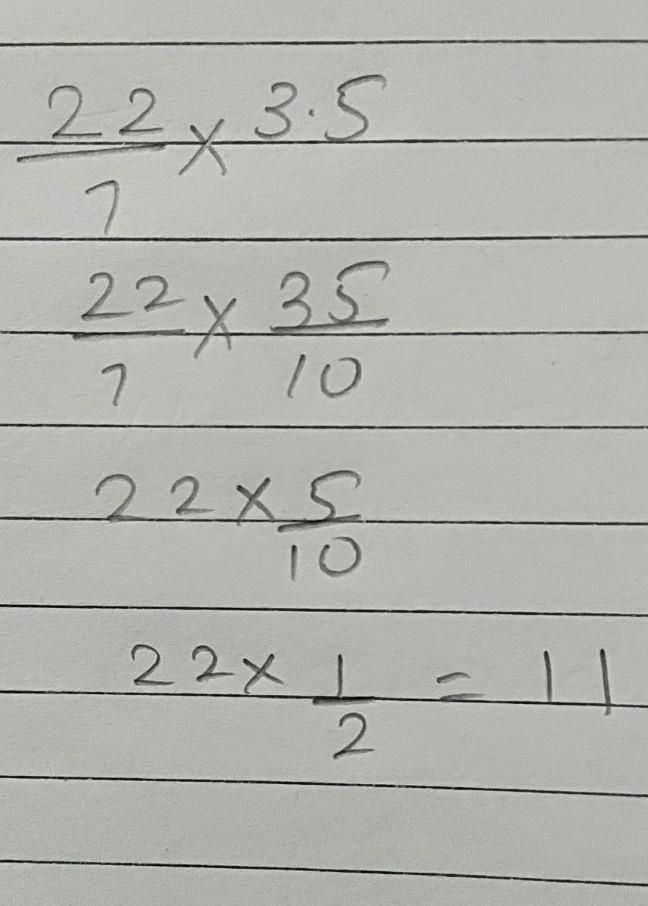 22/7 × 3.5
22/7 × 35/10
22 × 5/10
22 × 1/2 = 11